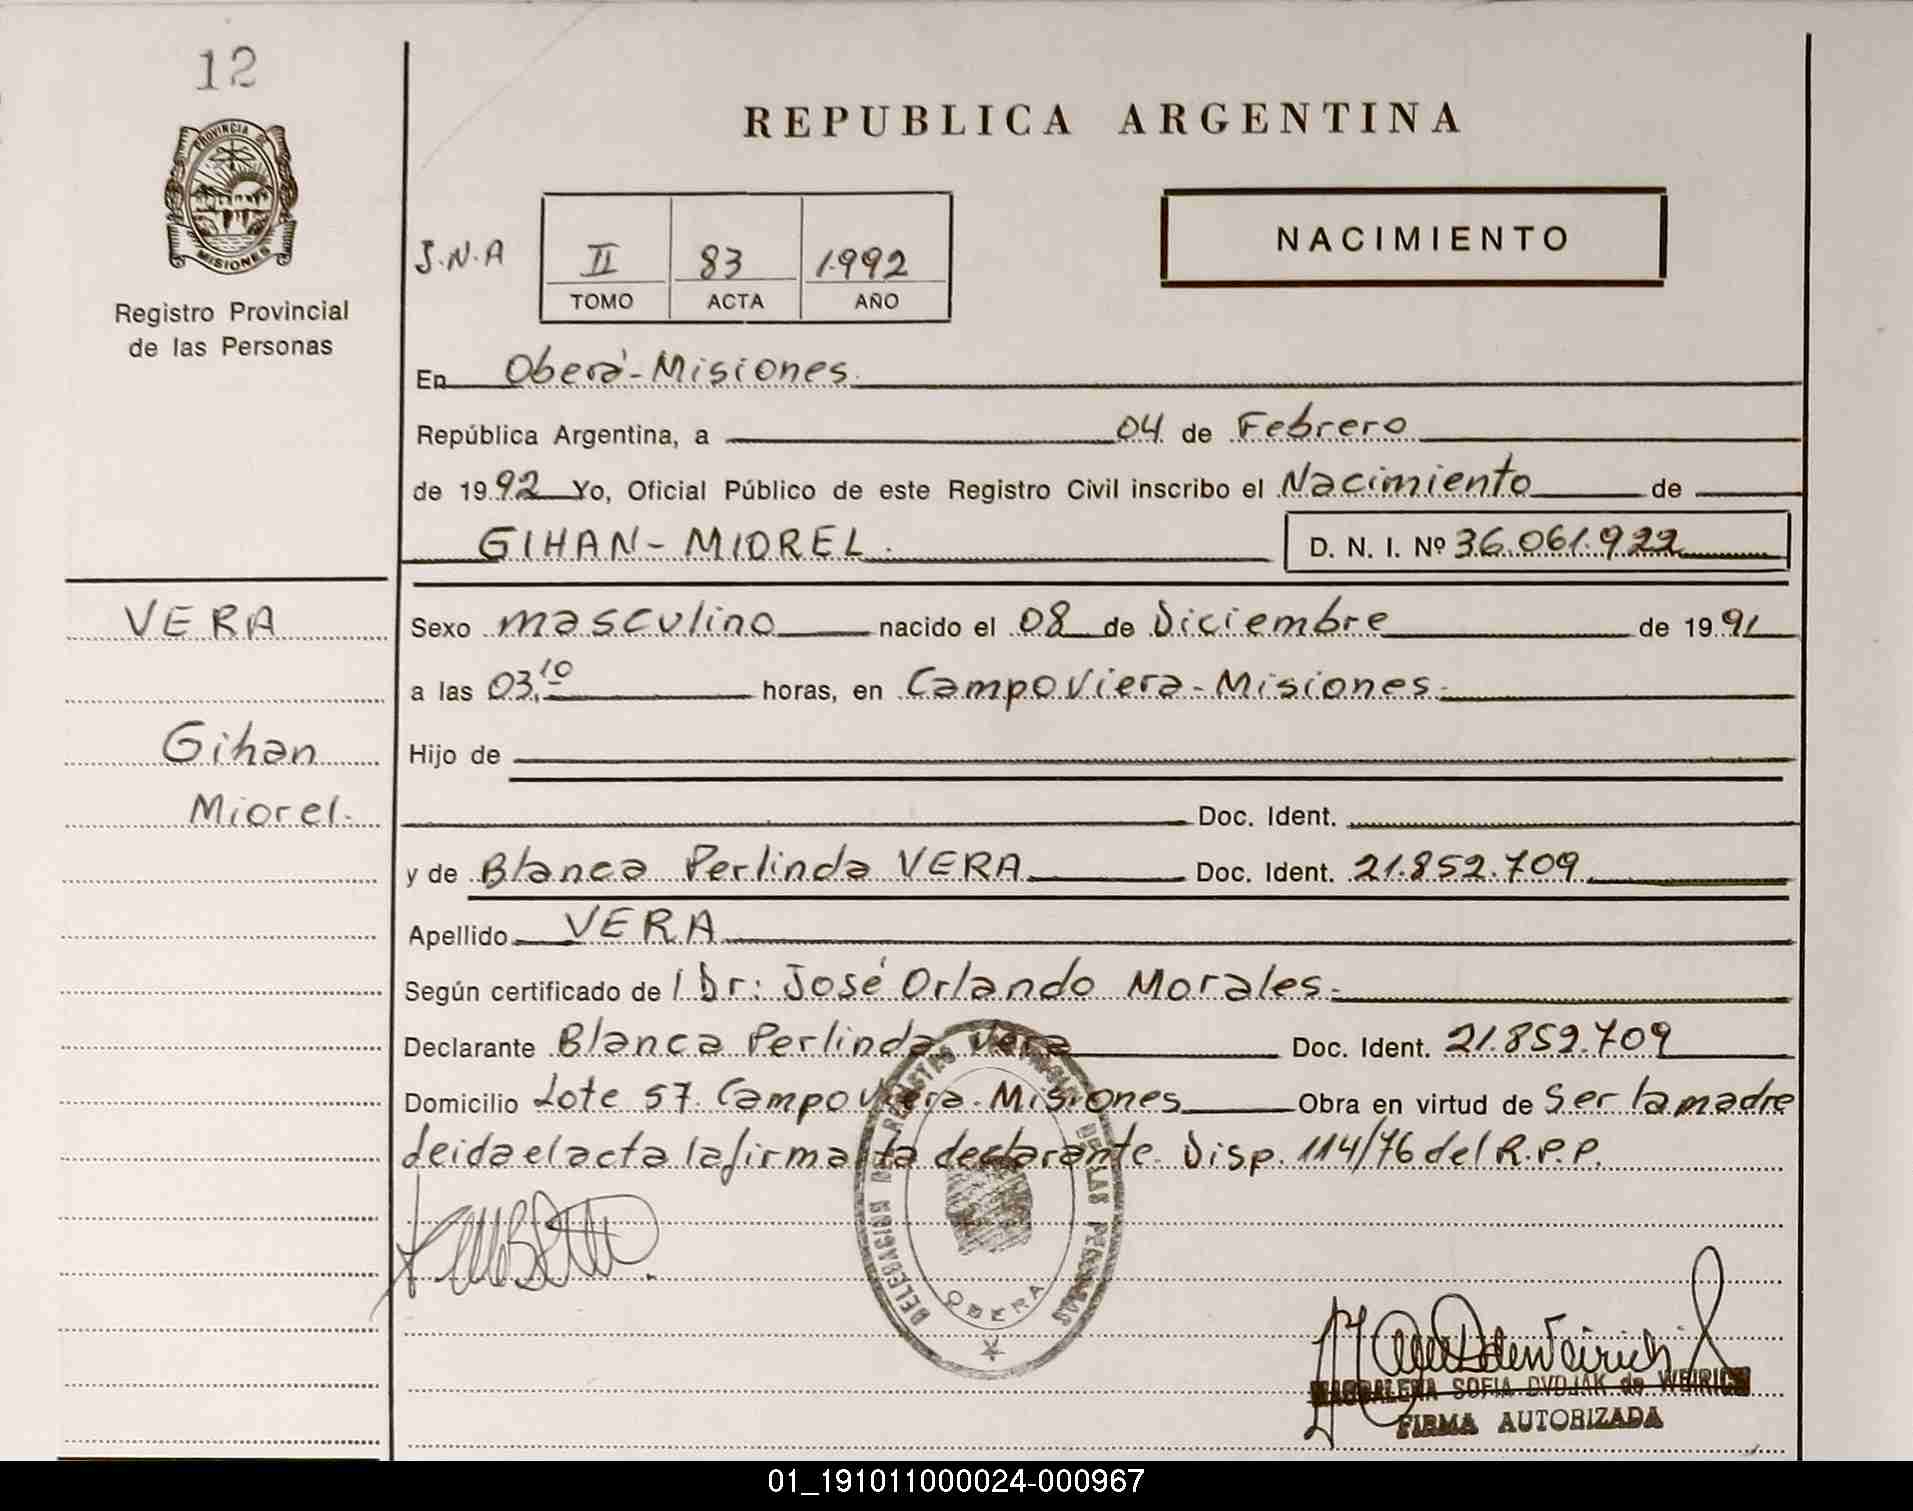 12
PROVINCIA DE
MISIONES
Registro Provincial
de las Personas
VERA
Gihan
Miorel.
REPUBLICA ARGENTINA
NACIMIENTO
J.N.A
II 83 1992
TOMO ACTA AÑO
En Oberá-Misiones.
República Argentina, a 04 de Febrero
de 1992 Yo, Oficial Público de este Registro Civil inscribo el Nacimiento de
GIHAN-MIOREL. D. N. I. Nº 36.061.922
Sexo masculino nacido el 08 de Diciembre de 1991
a las 03,10 horas, en Campo Viera-Misiones-
Hijo de
Doc. Ident.
y de Blanca Perlinda VERA Doc. Ident. 21.852.709
Apellido VERA
Según certificado de l Dr: José Orlando Morales-
Declarante Blanca Perlinda Vera Doc. Ident. 21.852.709
Domicilio Lote 57. Campo Viera-Misiones Obra en virtud de Ser la madre
leida el acta la firma la declarante. Disp. 114/76 del R.P.P.
DELEGACION DEL REGISTRO DE LAS PERSONAS
OBERA
MAGDALENA SOFIA DVOJAK de WEIRICH
FIRMA AUTORIZADA
01_191011000024-000967